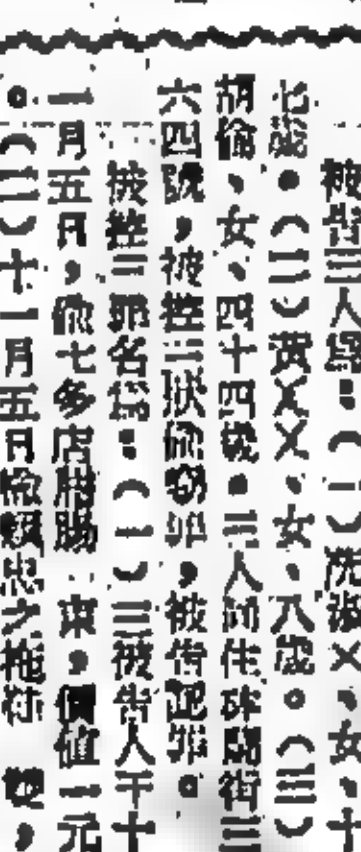 被告三人爲：（一）冼淑×、女、十
七歲。（二）黃××、女、八歲。（三）
胡倫、女、四十四歲。三人同住砵蘭街三
六四號，被控三狀偷竊罪，被告認罪。
被控三罪名爲：（一）三被告人于十
一月五日，偷七多店腊腸一束，價值一元
。（二）十一月五日偷 忠之拖鞋一雙，